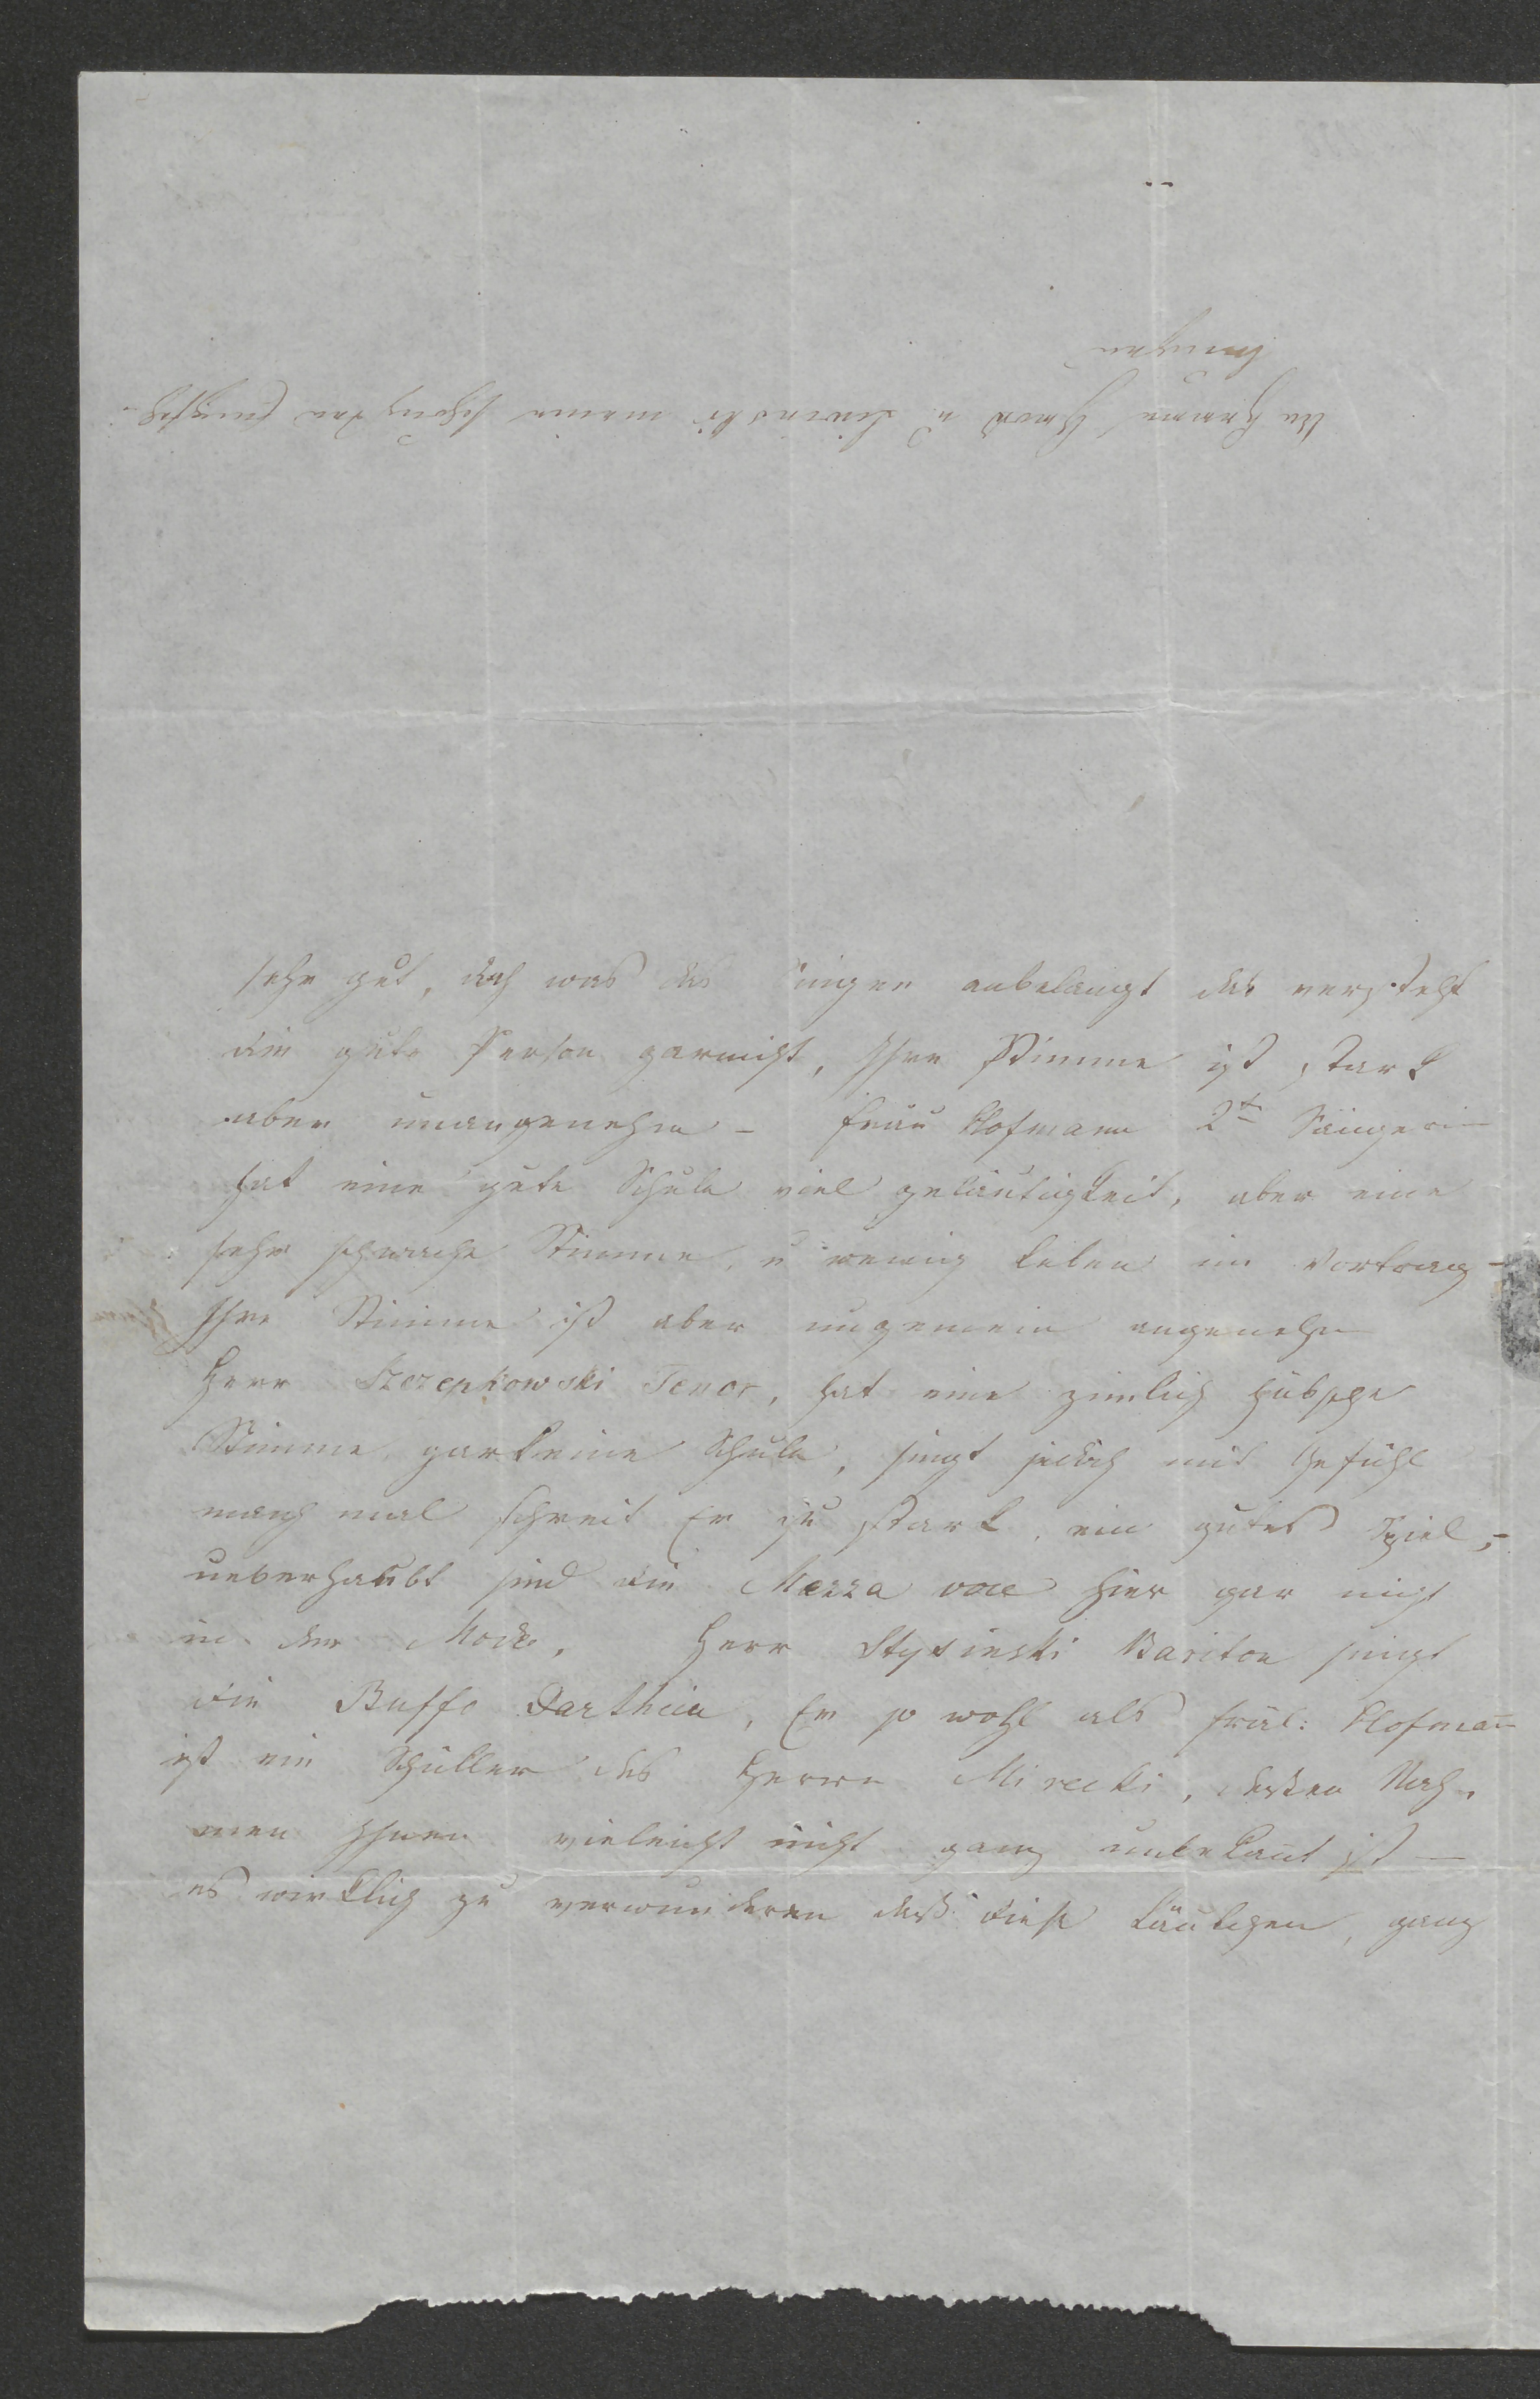 An Herrn Gwod u Lewinski meine
sehr gut, doch was das Singen anbelangt das versteht
die gute Person garnicht, Ihre Stimme ist stark
aber unangenehm – Frau Hofmann 2te Sängerin
hat eine gute Schule viel geläufigkeit, aber eine
sehr schwache Stimme, u wenig Leben im Vortrag –
Ihre Stimme ist aber ungemein angenehm
Herr Szczepkowski Tenor, hat eine zimlich hübsche
Stimme, gar keine Schule, singt jedoch mit Gefühl
manch mal schreit Er zu stark, ein gutes Spiel, –
ueberhaubt sind die Mezza voce hier gar nicht
in der Mode. Herr Stysinski Bariton singt
die Buffo Parthien, Er so wohl als Fräul: Hofman̄
ist ein Schüller des Herrn Mirecki, dessen Nah-
men Ihnen vieleicht nicht ganz unbekan̄t ist –
es wirklich zu verwunderen daß diese Läutchen, ganz